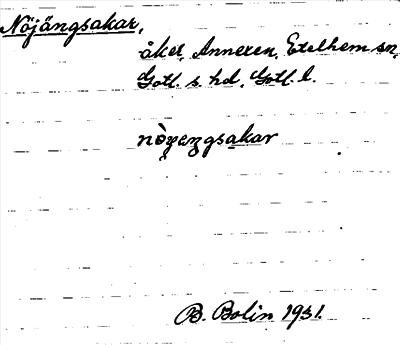 Nöjängsakar,
åker, Annexen, Etelhem sn,
Gotl. s. hd, Gotl. l.
nòyengsakar
B. Bolin 1931.